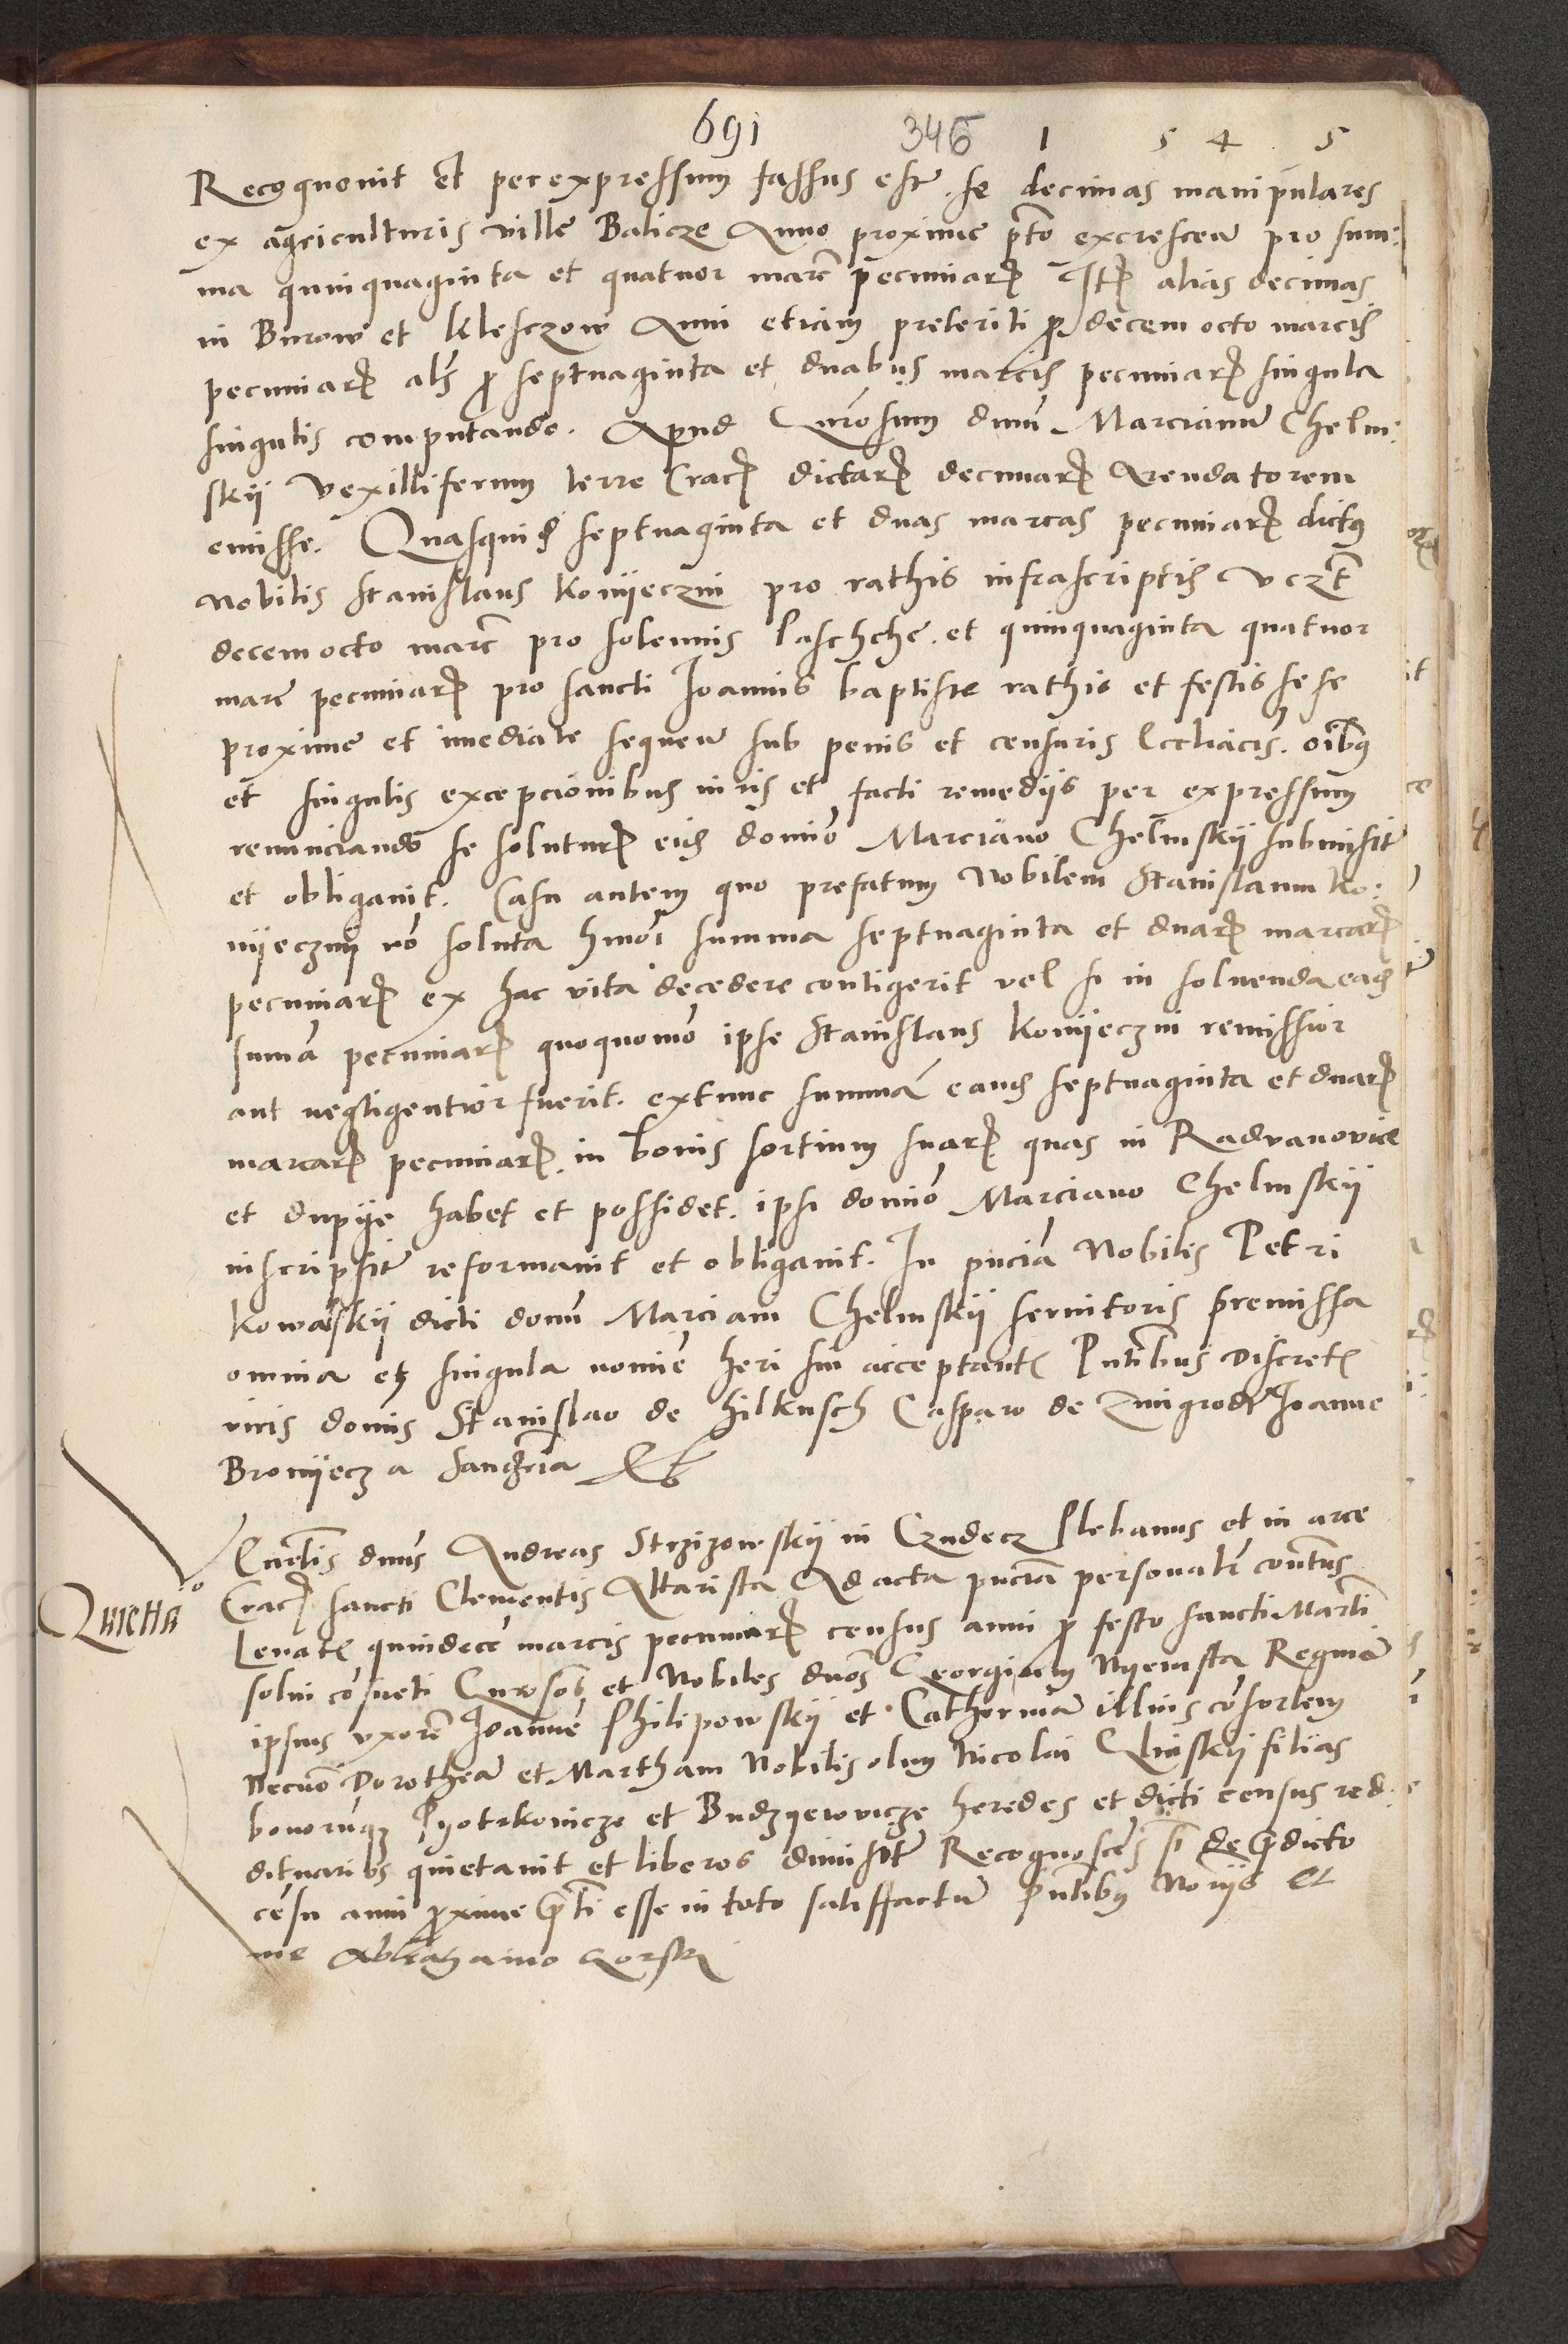 691 346 1 5 4 5
Recognovit et per expressum fassus est se decimas manipulares
ex agriculturis ville Balicze Anno proxime pto excrescen pro sum:
ma quinquaginta et quatuor marc pecuniar Itē alias decimas
in Burow et Kleszczow Anni etiam preteriti p decem octo marcis
pecuniar als p septuaginta et duabus marcis pecuniar singula
singulis computando. Apud Gnrosum dnm Marcianum Chelm:
skÿ vexilliferum terre Crac dictar decimar Arendatorem
emisse. Quasquid septuaginta et duas marcas pecuniar dictus
Nobilis Stanislaus Konÿeczni pro rathis infrascriptis vczt
decem octo marc pro solennis Paschche et quinquaginta quatuor
marc pecuniar pro sancti Joannis baptiste rathis et festis sese
proxime et imediate sequen sub penis et censuris Eccliacis. oibus
et singulis excepcionibus iuris et facti remedÿs per expressum
renunciando se soluturū eid domino Marciano Chelmskÿ submisit
et obligavit. Casu autem quo prefatum Nobilem Stanislaum Ko:
nÿecznÿ no soluta hmoi summa septuaginta et duar marcar
pecuniar ex hac vita decedere contigerit vel si in soluenda ead
sumā pecuniar quoquomo ipse Stanislaus Konÿeczni remissior
aut negligentior fuerit. extunc summā eand septuaginta et duar
marcar pecuniar in bonis sortium suar quas in Radvanovice
et dupÿe habet et possidet. ipsi domino Marciano Chelmskÿ
inscripsit reformavit et obligavit. In pncia Nobilis Petri
Kowalskÿ dicti domi Marciani Chelmskÿ servitoris premissa
omnia et singula nomie heri sui acceptantē Pntibus Discretē
viris domis Stanislao de hilkusch Casparo de Zmigrod Joanne
Bronÿecz a Sandria
Quietta
dnus Andreas Strzizowskÿ in Czudecz Plebanus et in arce
Crac sancti Clementis Altarista Ad acta pncia personalr contus
Levatē quindecē marcis pecuniar census anni p festo sancti Martī
solui cōsueti Gnrosos et Nobiles dnos Georgium Nÿemsta Reginā
ipsius uxorē Joannē Philipowskÿ et Catherinā illius cōsortem
Necnō Dorotheā et Martham Nobilis olim Nicolai filias
bonorumqz Pÿotrkovicze et Budzÿewovicze heredes et dicti census red:
dituarios quietavit et liberos dimisit Recognoscēs s de predicto
cēsu anni pxime prti esse in toto satisfactū pntibus Norÿs et
me Abrahamo Gorski